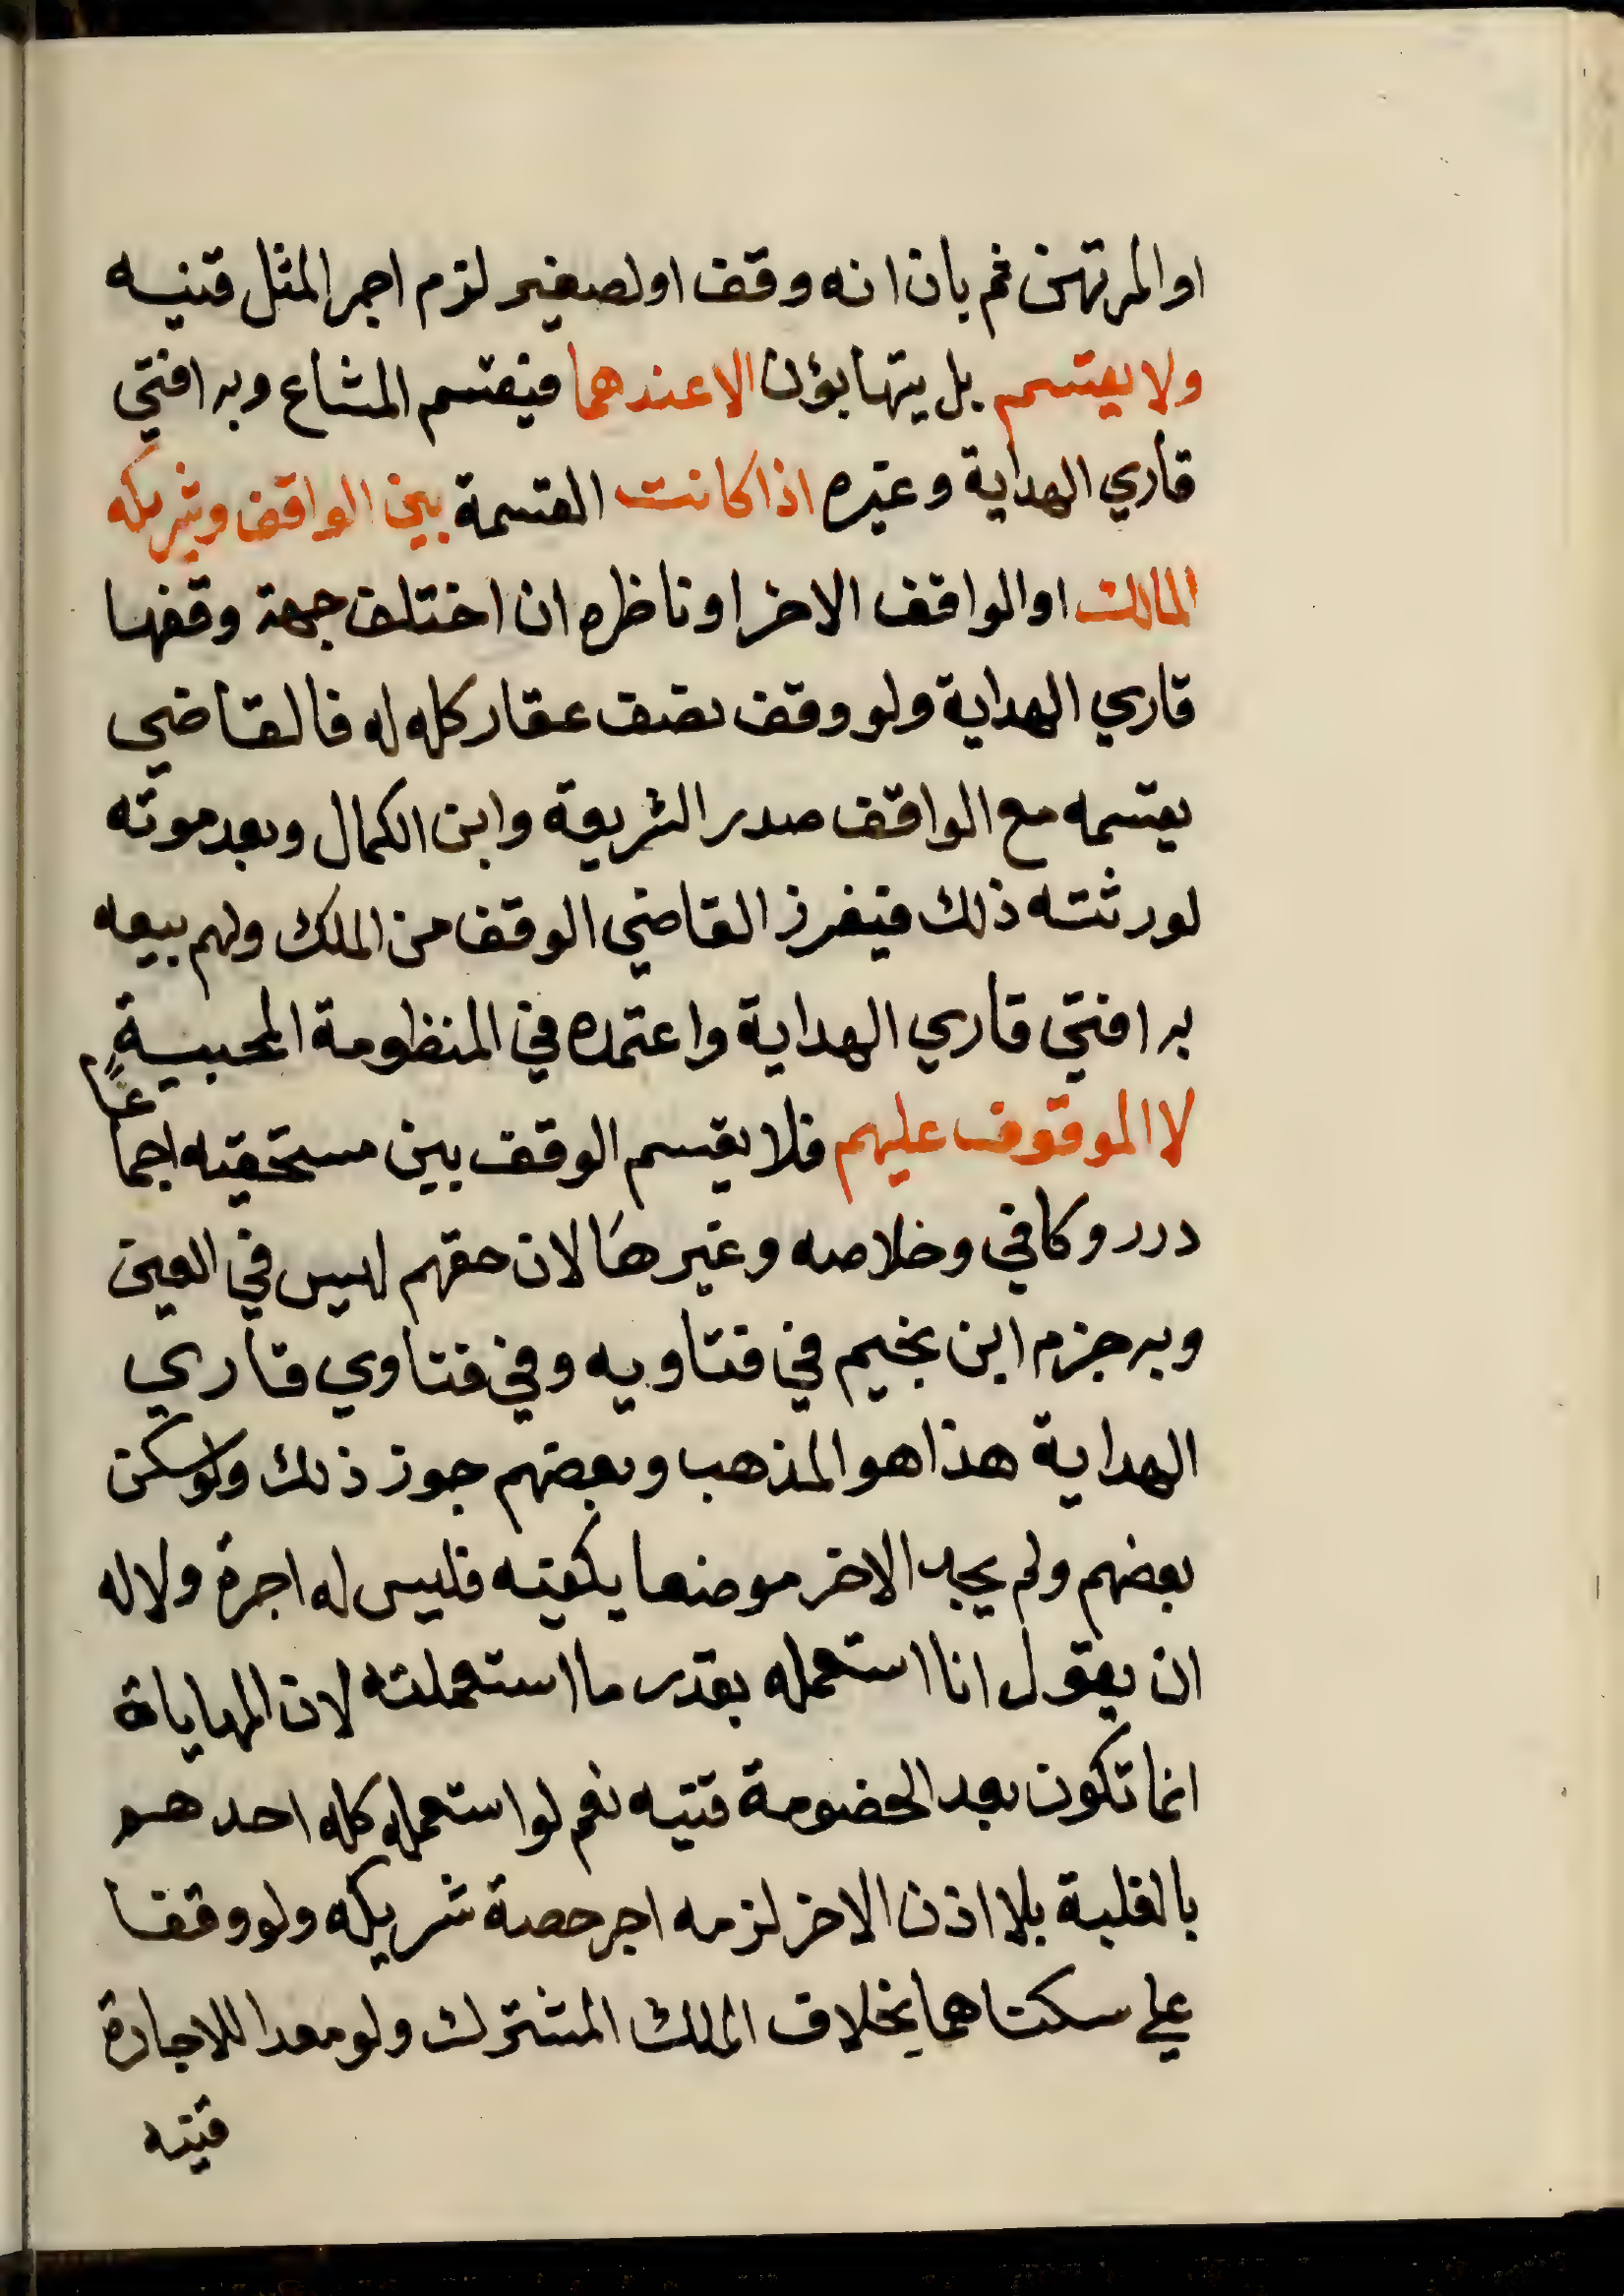 او المرتهن ثم بان انه وقف او لصغير لزم اجر المثل قنيه
ولا يقسم بل يتهايؤن الا عندهما فيقسم المشاع وبه افتي
قاري الهداية وغيره اذا كانت القسمة بين الواقف وشريكه
المالك او الواقف الاخر او ناظره ان اختلف جهة وقفهما
قاري الهداية ولو وقف نصف عقار كله له فالقاضي
يقسمه مع الواقف صدر الشريعة وابن الكمال وبعد موته
لورثته ذلك فيفرز القاضي الوقف من الملك ولهم بيعه
به افتي قاري الهداية واعتمده في المنظومة المحبية
لا الموقوف عليهم فلا يقسم الوقف بين مستحقيه اجماعًا
درر وكافي وخلاصه وغيرها لان حقهم ليس في العين
وبه جزم ابن نجيم في فتاويه وفي فتاوي قاري
الهداية هذا هو المذهب وبعضهم جوز ذلك ولو سكن
بعضهم ولم يجد الاخر موضعا يكفيه فليس له اجرة ولا له
ان يقول انا استعمله بقدر ما استعملته لان المهاياة
انما تكون بعد الخصومة قنيه نعم لو استعمله كله احدهم
بالغلبة بلا اذن الاخر لزمه اجر حصة شريكه ولو وقفا
علي سكناهما بخلاف الملك المشترك ولو معدا للاجارة
قنيه